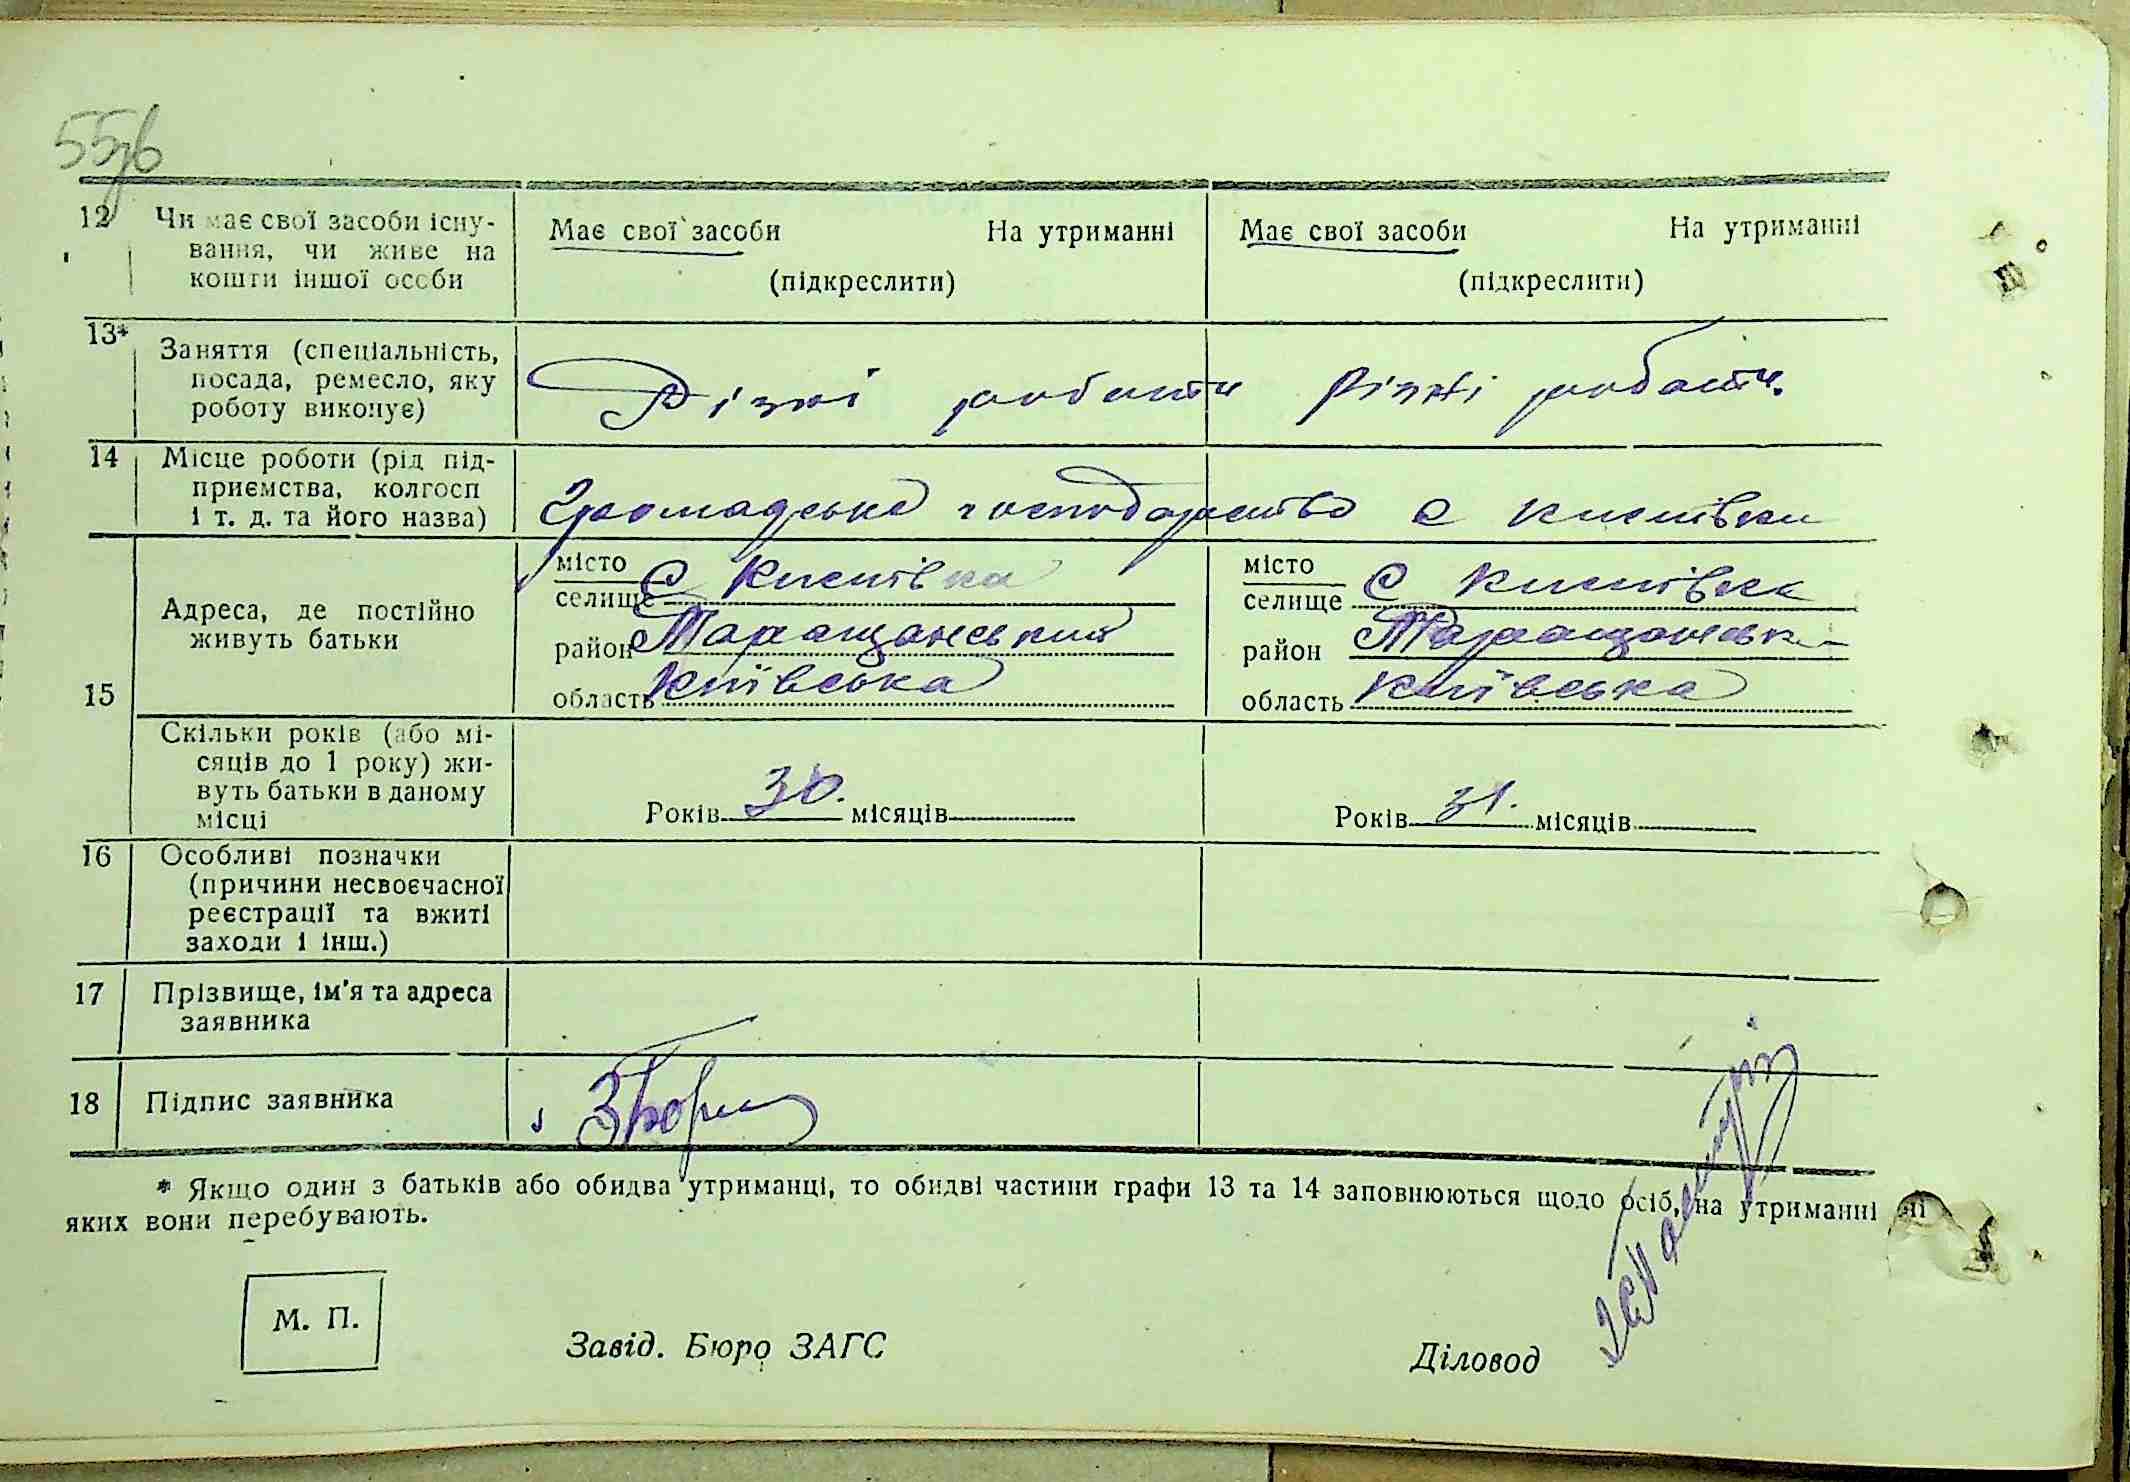 55зв
12 Чи має свої засоби існу-
вання, чи живе на
кошти іншої особи
Має свої засоби На утриманні
(підкреслити)
Має свої засоби На утриманні
(підкреслити)
13* Заняття (спеціальність,
посада, ремесло, яку
роботу виконує)
Різні роботи
різні роботи.
14 Місце роботи (рід під-
приємства, колгосп
і т. д. та його назва)
Громадське господарство с Кислівки
15
Адреса, де постійно
живуть батьки
місто
селище с Кислівка
район Таращанський
область Київська
місто
селище с Кислівка
район Таращанськ
область Київська
Скільки років (або мі-
сяців до 1 року) жи-
вуть батьки в даному
місці
Років 30. місяців
Років 31. місяців
16 Особливі позначки
(причини несвоєчасної
реєстрації та вжиті
заходи і інш.)
17 Прізвище, ім'я та адреса
заявника
18 Підпис заявника
* Якщо один з батьків або обидва утриманці, то обидві частини графи 13 та 14 заповнюються щодо осіб, на утриманні
яких вони перебувають.
М. П.
Завід. Бюро ЗАГС
Діловод